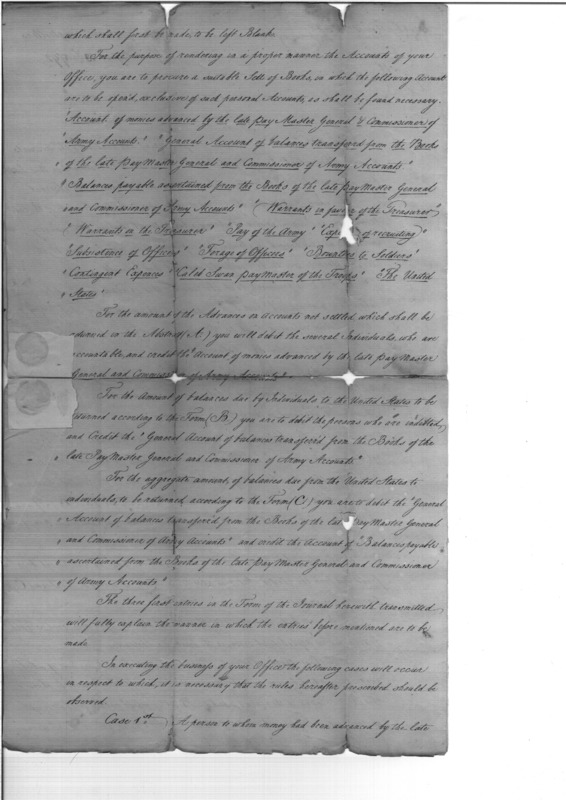 which shall first be made, to be left Blank.
For the purpose of rendering in a proper manner the Accounts of your
Office, you are to procure a suitable Sett of Books, in which the following Accounts
are to be opened, exclusive of such personal Accounts, as shall be found necessary.
"Account of monies advanced by the late Pay Master General & Commissioner of
"Army Accounts." "General Account of balances transfered from the Books
" of the late Pay Master General and Commissioner of Army Accounts"
" Balances payable, ascertained from the Books of the late Pay Master General
" and Commissioner of Army Accounts" "Warrants in favor of the Treasurer"
" Warrants on the Treasurer" "Pay of the Army" "of recruiting"
"Subsistence of Officers" "Forage of Officers" "Bounties to Soldiers"
" Contingent Expences" "Caleb Swan Pay Master of the Troops" "The United
" States"
For the amount of the Advances on Accounts not settled, which shall be
returned in the Abstract (A.) you will debit the several Individuals, who are
accountable, and credit the "Account of monies advanced by the late Pay Master
General and Commissioner of Army Accounts"
For the Amount of balances due by Individuals to the United States to be
returned according to the Form (B.) you are to debit the persons who are indebted,
and Credit the "General Account of balances transfered from the Books of the
" late Pay Master General and Commissioner of Army Accounts"
For the aggregate amount, of balances due from the United States to
individuals, to be returned, according to the Form (C.) you are to debit the "General
" Account of balances transfered from the Books of the late Pay Master General
" and Commissioner of Army Accounts" and credit the Account of "Balances payable
" ascertained from the Books of the late Pay Master General and Commissioner
" of Army Accounts"
The three first entries in the Form of the Journal herewith transmitted
will fully explain the manner in which the entries before mentioned are to be
made.
In executing the business of your Office the following cases will occur
in respect to which, it is necessary that the rules hereafter prescribed should be
observed.
Case 1st. A person to whom money had been advanced by the late